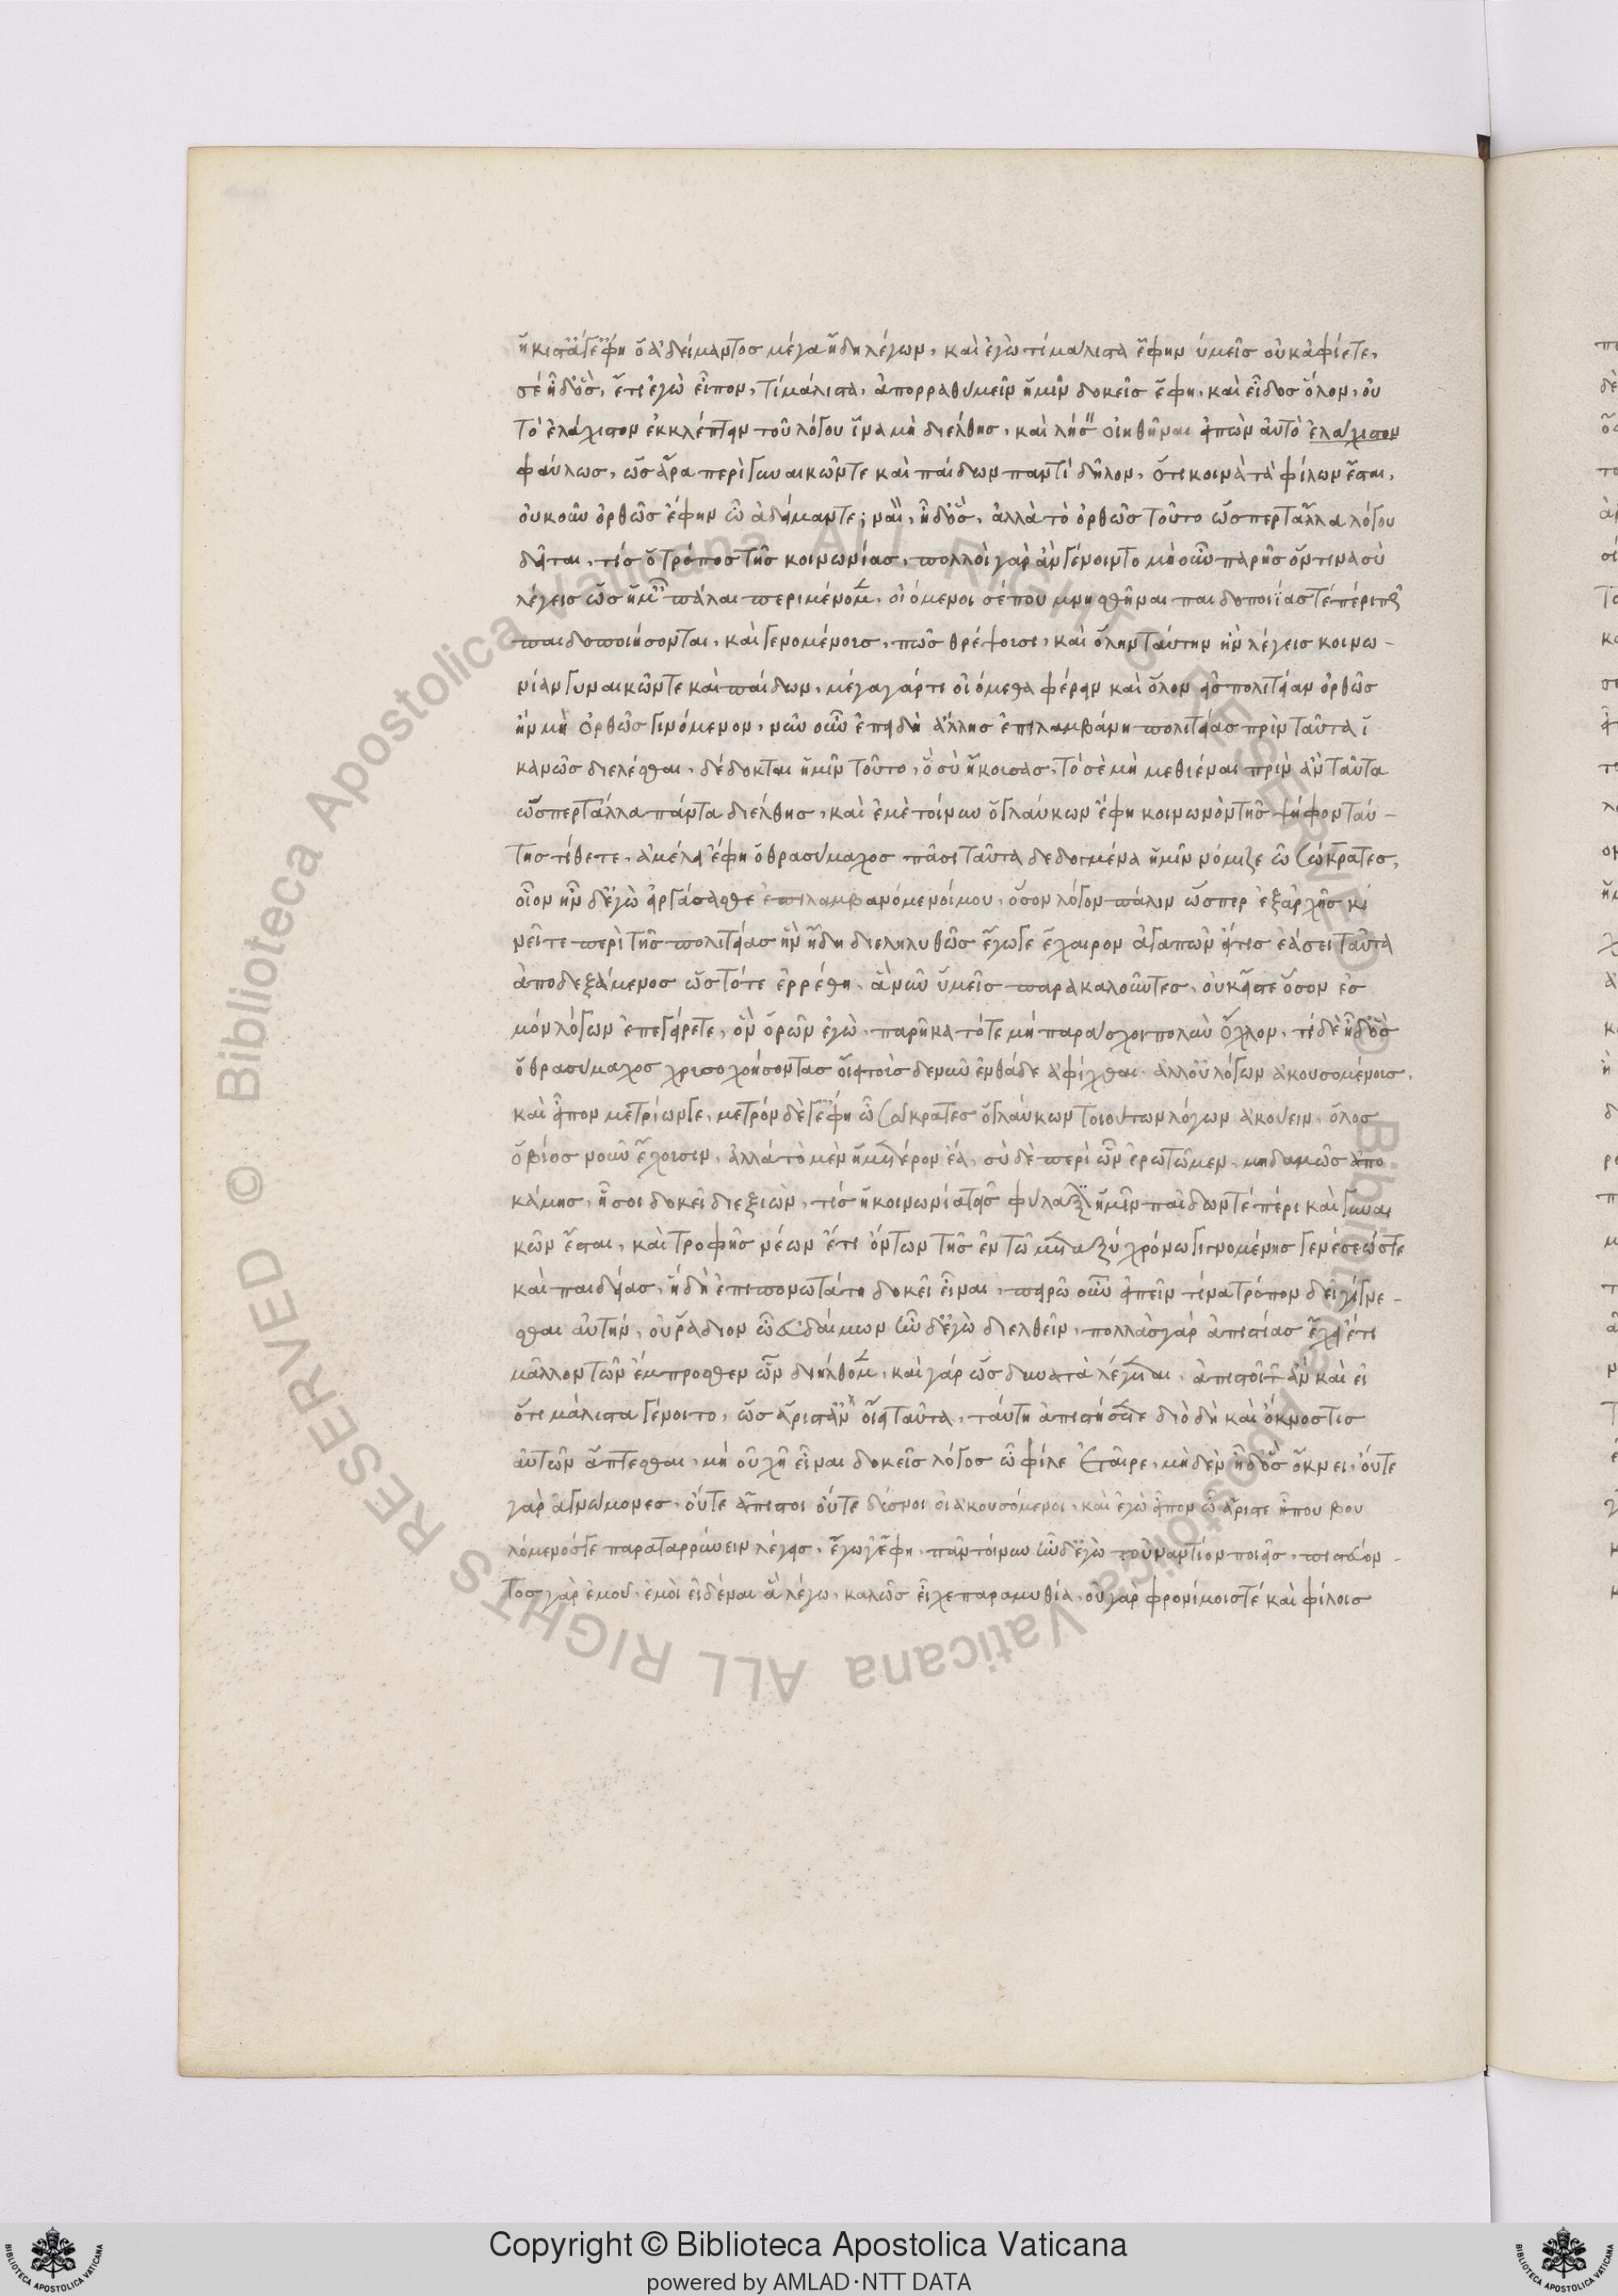 ἥκιστά γε ἔφη ὁ ἀδείμαντος μέγα ἤδη λέγων, καὶ ἐγὼ τί μάλιστα ἔφην ὑμεῖς οὐκ ἀφίετε,
σέ ἦ δ' ὅς, ἔτι ἐγὼ εἶπον, τί μάλιστα, ἀπορραθυμεῖν ἡμῖν δοκεῖς ἔφη, καὶ εἶδος ὅλον, οὐ
τὸ ἐλάχιστον ἐκκλέπτειν τοῦ λόγου ἵνα μὴ διέλθης, καὶ λήσειν οἰηθῆναι εἰπὼν αὐτὸ ἐλάχιστον
φαύλως, ὡς ἄρα περὶ γυναικῶν τε καὶ παίδων παντὶ δῆλον, ὅτι κοινὰ τὰ φίλων ἔσται,
οὐκοῦν ὀρθῶς ἔφην ὦ ἀδείμαντε; ναί, ἦ δ' ὅς, ἀλλὰ τὸ ὀρθῶς τοῦτο ὥσπερ τἆλλα λόγου
δεῖται, τίς ὁ τρόπος τῆς κοινωνίας, πολλοὶ γὰρ ἂν γένοιντο μὴ οὖν παρῇς ὅντινα σὺ
λέγεις ὡς ἡμεῖς πάλαι περιμένομεν, οἰόμενοι σέ που μνησθῆναι παιδοποιΐας τέ πέρι πῶς
παιδοποιήσονται, καὶ γενομένους, πῶς θρέψουσι, καὶ ὅλην ταύτην ἣν λέγεις κοινω-
νίαν γυναικῶν τε καὶ παίδων, μέγα γάρ τι οἰόμεθα φέρειν καὶ ὅλον εἰς πολιτείαν ὀρθῶς
ἢν μὴ ὀρθῶς γινόμενον, νῦν οὖν ἐπειδὴ ἄλλης ἐπιλαμβάνη πολιτείας πρὶν ταῦτα ἱ
κανῶς διελέσθαι, δέδοκται ἡμῖν τοῦτο, ὃ σὺ ἤκουσας, τὸ σὲ μὴ μεθιέναι πρὶν ἂν ταῦτα
ὥσπερ τἄλλα πάντα διέλθης, καὶ ἐμὲ τοίνυν ὁ γλαύκων ἔφη κοινωνὸν τῆς ψήφου ταύ-
της τίθετε, ἀμέλει ἔφη ὁ θρασύμαχος πᾶσι ταῦτα δεδογμένα ἡμῖν νόμιζε ὦ Σώκρατες,
οἷον ἦν δ' ἐγὼ εἰργάσασθε ἐπιλαμβανόμενοί μου, ὅσον λόγον πάλιν ὥσπερ ἐξ ἀρχῆς κι
νεῖτε περὶ τῆς πολιτείας ἣν ἤδη διεληλυθὼς ἔγωγε ἔχαιρον ἀγαπῶν εἴ τις ἐάσει ταῦτα
ἀποδεξάμενος ὡς τότε ἐρρέθη, ἃ νῦν ὑμεῖς παρακαλοῦντες, οὐκ ἴστε ὅσον ἑσ
μὸν λόγων ἐπεγείρετε, ὃν ὁρῶν ἐγὼ, παρῆκα τότε μὴ παράσχοι πολὺν ὄχλον, τί δὲ ἦ δ' ὃς
ὁ θρασύμαχος χρυσοχοήσοντας οἴει τοὺς δε νῦν ἐνθάδε ἀφῖχθαι ἀλλ' οὐ λόγων ἀκουσομένους,
καὶ εἶπον μετρίων γε, μέτρον δέ γ' ἔφη ὦ Σώκρατες ὁ γλαύκων τοιούτων λόγων ἀκούειν, ὅλος
ὁ βίος νοῦν ἔχουσιν, ἀλλὰ τὸ μὲν ἡμέτερον ἔα, σὺ δὲ περὶ ὧν ἐρωτῶμεν, μηδαμῶς ἀπο
κάμῃς, ᾗ σοι δοκεῖ διεξιὼν, τίς ἡ κοινωνία τοῖς φύλαξιν ἡμῖν παίδων τέ πέρι καὶ γυναι
κῶν ἔσται, καὶ τροφῆς νέων ἔτι ὄντων τῆς ἐν τῷ μεταξὺ χρόνω γιγνομένης γενέσεώς τε
καὶ παιδείας, ἣ δὴ ἐπιπονωτάτη δοκεῖ εἶναι, πειρῶ οὖν εἰπεῖν τίνα τρόπον δεῖ γίγνε-
σθαι αὐτήν, οὐ ῥάδιον ὦ εὔδαιμον ἦν δ' ἐγὼ διελθεῖν, πολλὰς γὰρ ἀπιστίας ἔχει ἔτι
μᾶλλον τῶν ἔμπροσθεν ὧν διήλθομεν, καὶ γὰρ ὡς δυνατὰ λέγεται, ἀπιστοῖτ' ἂν καὶ εἰ
ὅτι μάλιστα γένοιτο, ὡς ἄριστ' ἂν εἴη ταῦτα, ταύτη ἀπιστήσεται διὸ δὴ καὶ ὄκνος τις
αὐτῶν ἅπτεσθαι, μὴ εὐχὴ εἶναι δοκεῖς λόγος ὦ φίλε ἑταῖρε, μηδὲν ἦ δ' ὃς ὄκνει, οὔτε
γὰρ ἀγνώμονες, οὔτε ἄπιστοι οὔτε δύσνοι οἱ ἀκουσόμενοι, καὶ ἐγὼ εἶπον ὦ ἄριστε ἦ που βου
λόμενός τε παραταρρύνειν λέγεις, ἔγωγ' ἔφη, πᾶν τοίνυν ἦν δ' ἐγὼ τοὐναντίον ποιεῖς, πιστεύον-
τος γὰρ ἐμοῦ, ἐμοὶ εἰδέναι ἃ λέγω, καλῶς εἶχε παραμυθία, οὐ γὰρ φρονίμοις τέ καὶ φίλοις
Copyright © Biblioteca Apostolica Vaticana
powered by AMLAD·NTT DATA